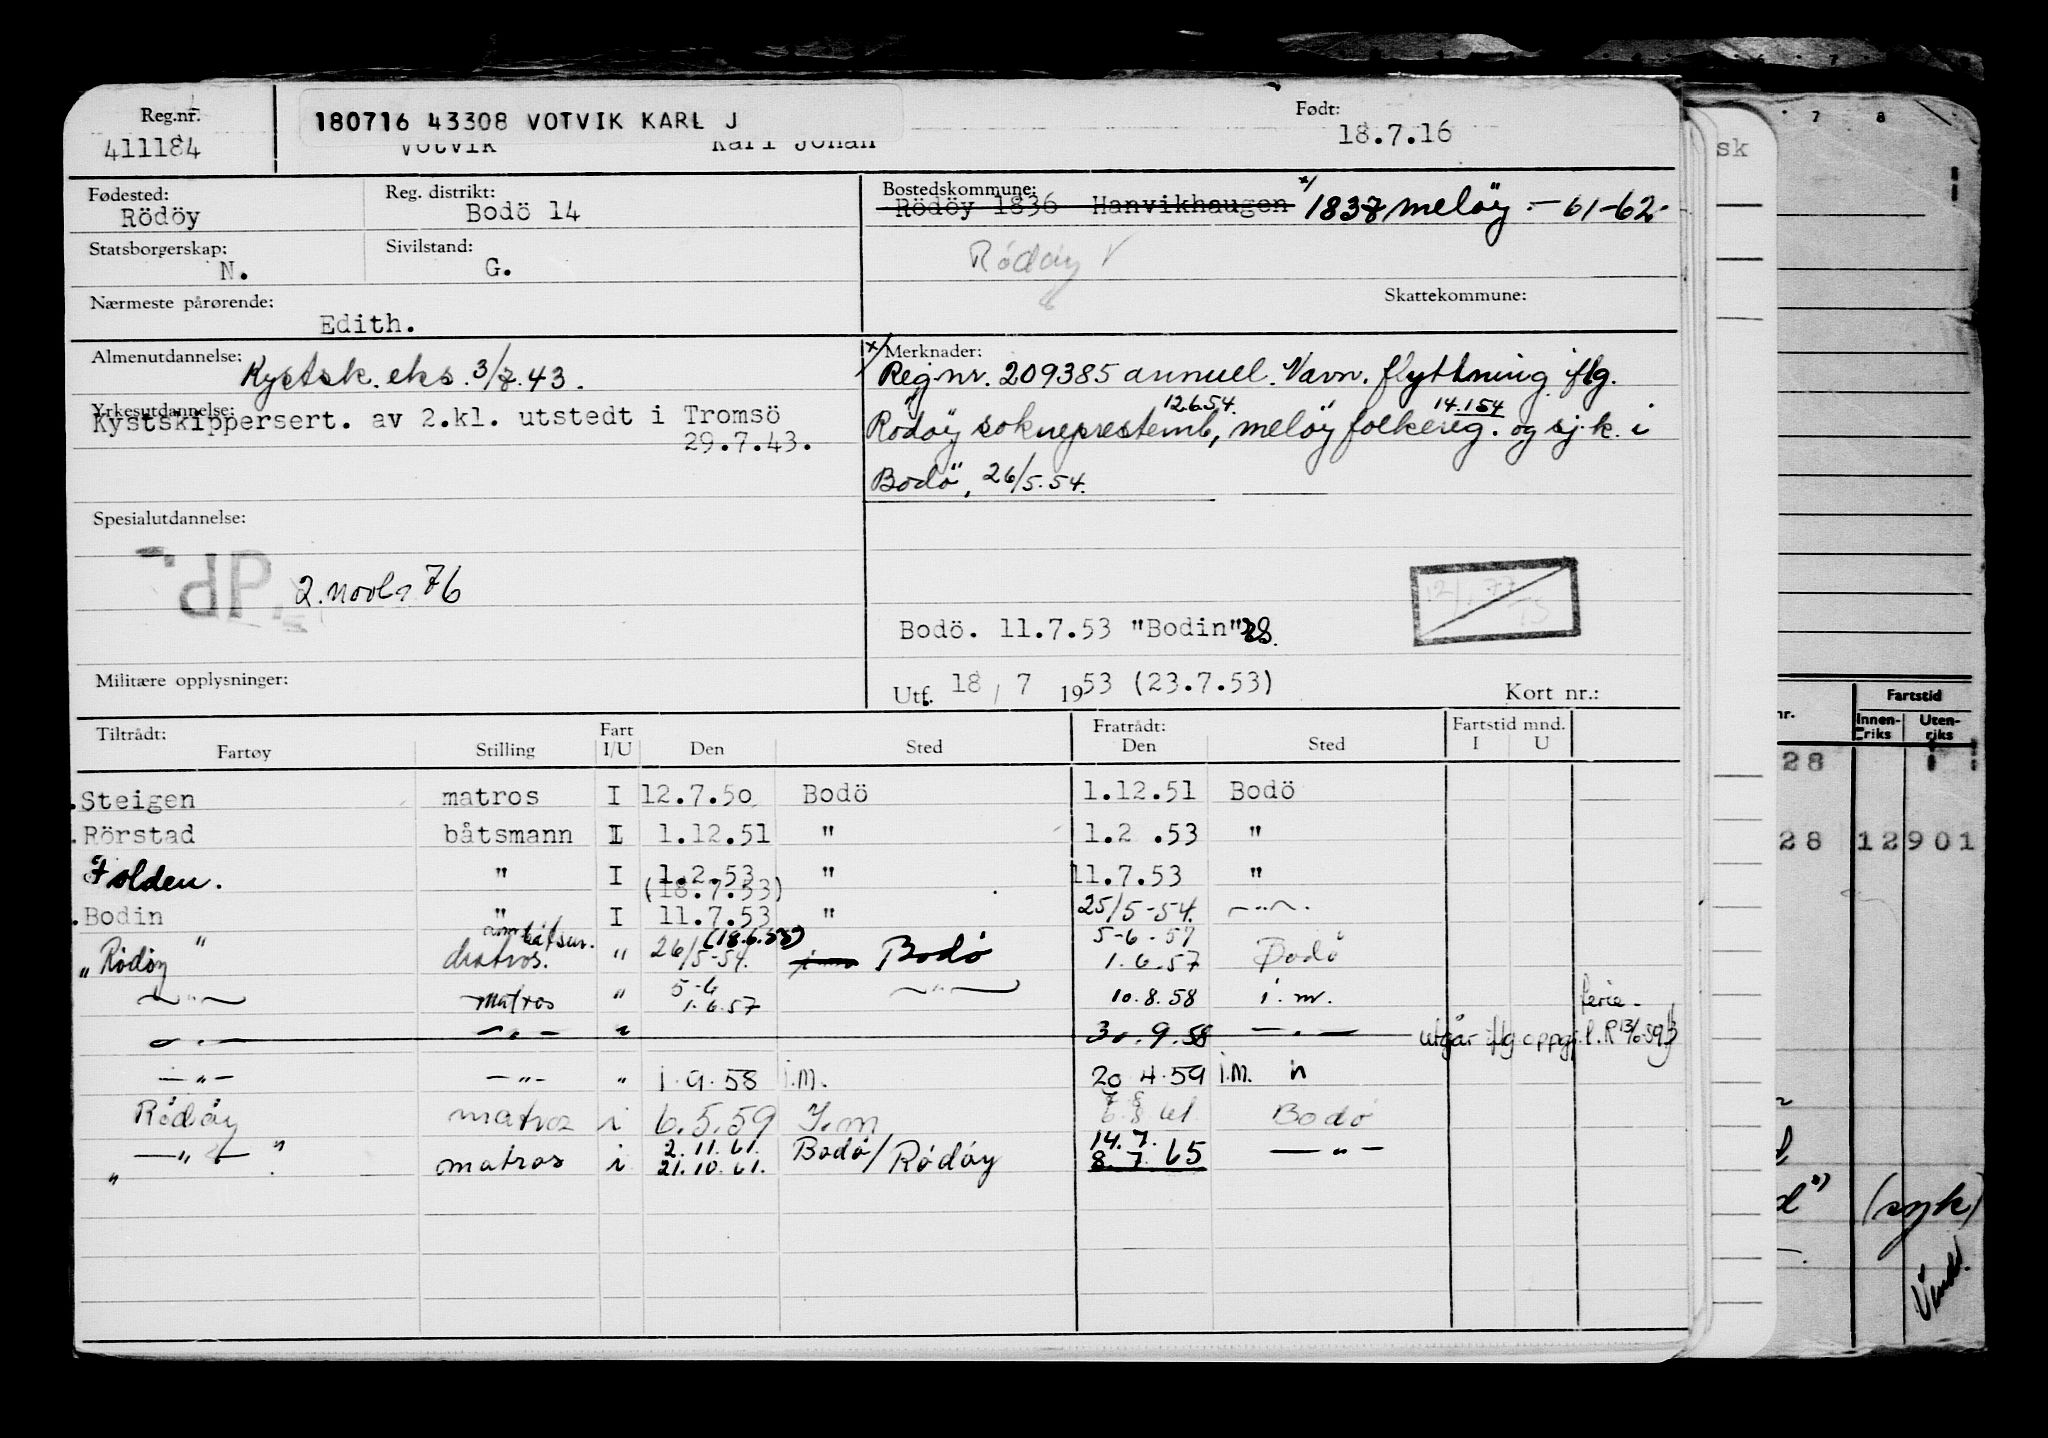 Reg.nr. 411184
180716 43308 VOTVIK KARL J
Votvik Karl Johan
Født: 18.7.16
Fødested: Rödöy
Reg. distrikt: Bodö 14
Bostedskommune: Rödöy 1836 Hanvikhaugen x/ 1837 Meløy - 61-62-
Statsborgerskap: N.
Sivilstand: G.
Rödöy V
Nærmeste pårørende: Edith.
Skattekommune:
Almenutdannelse: Kystsk. eks. 3/7.43.
Yrkesutdannelse: Kystskippersert. av 2.kl. utstedt i Tromsö
29.7.43.
x/ Merknader:
Reg.nr. 209385 annuel. Navn. flyttning iflg.
Rödöy sokneprestemb, 12.6.54. melöy folkereg. 14.1.54 og sj.k. i
Bodö, 26/5.54.
Spesialutdannelse:
dP.
2. 76
Bodö. 11.7.53 "Bodin"
Militære opplysninger:
Utf. 18/7 1953 (23.7.53)
Kort nr.:
Tiltrådt: Fartøy Stilling Fart I/U Den Sted Fratrådt: Den Sted Fartstid mnd. I U
Steigen matros I 12.7.50 Bodö 1.12.51 Bodö
Rörstad båtsmann I 1.12.51 " 1.2 .53 "
Folden. " I 1.2.53 " 11.7.53 "
(18.7.53)
Bodin " I 11.7.53 " 25/5-54. -"-
"Rödöy" matros. " 26/5-54. (18.6.58) Bodö 5-6-57 1.6.57 Bodö
-"- matros " 5-6 1.6.57 -"- 10.8.58 i.m. ferie-
-"- -"- " 30.9.58 -"- utgår iflg oppg.
-"- -"- " 1.9.58 i.m. 20.4.59 i.m.
Rödöy matros i 6.5.59 I.m 61 Bodö
"-"-" matros i 2.11.61. 21.10.61. Bodö/Rödöy 14.7. 8.7.65 -"-
sk
7 8
nr.
Fartstid
Innenriks Utenriks
28
28 12901
(syk)